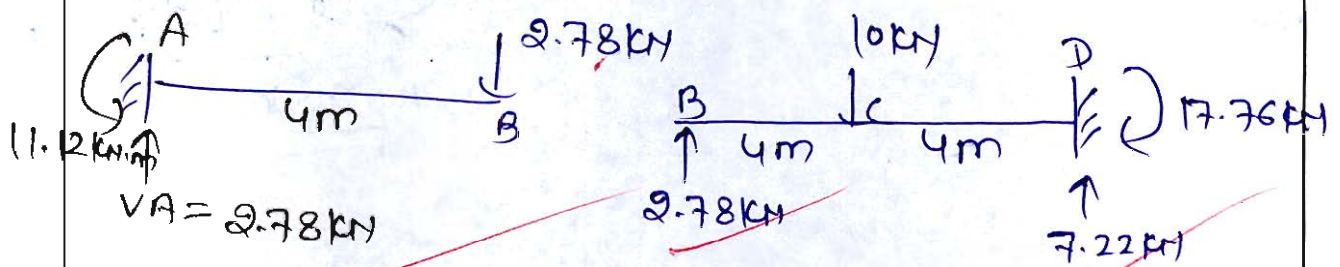 A
2.78KN
10KN
D
4m
B
B
C
17.76KN
11.12KN.m
4m
4m
VA = 2.78KN
2.78KN
7.22KN